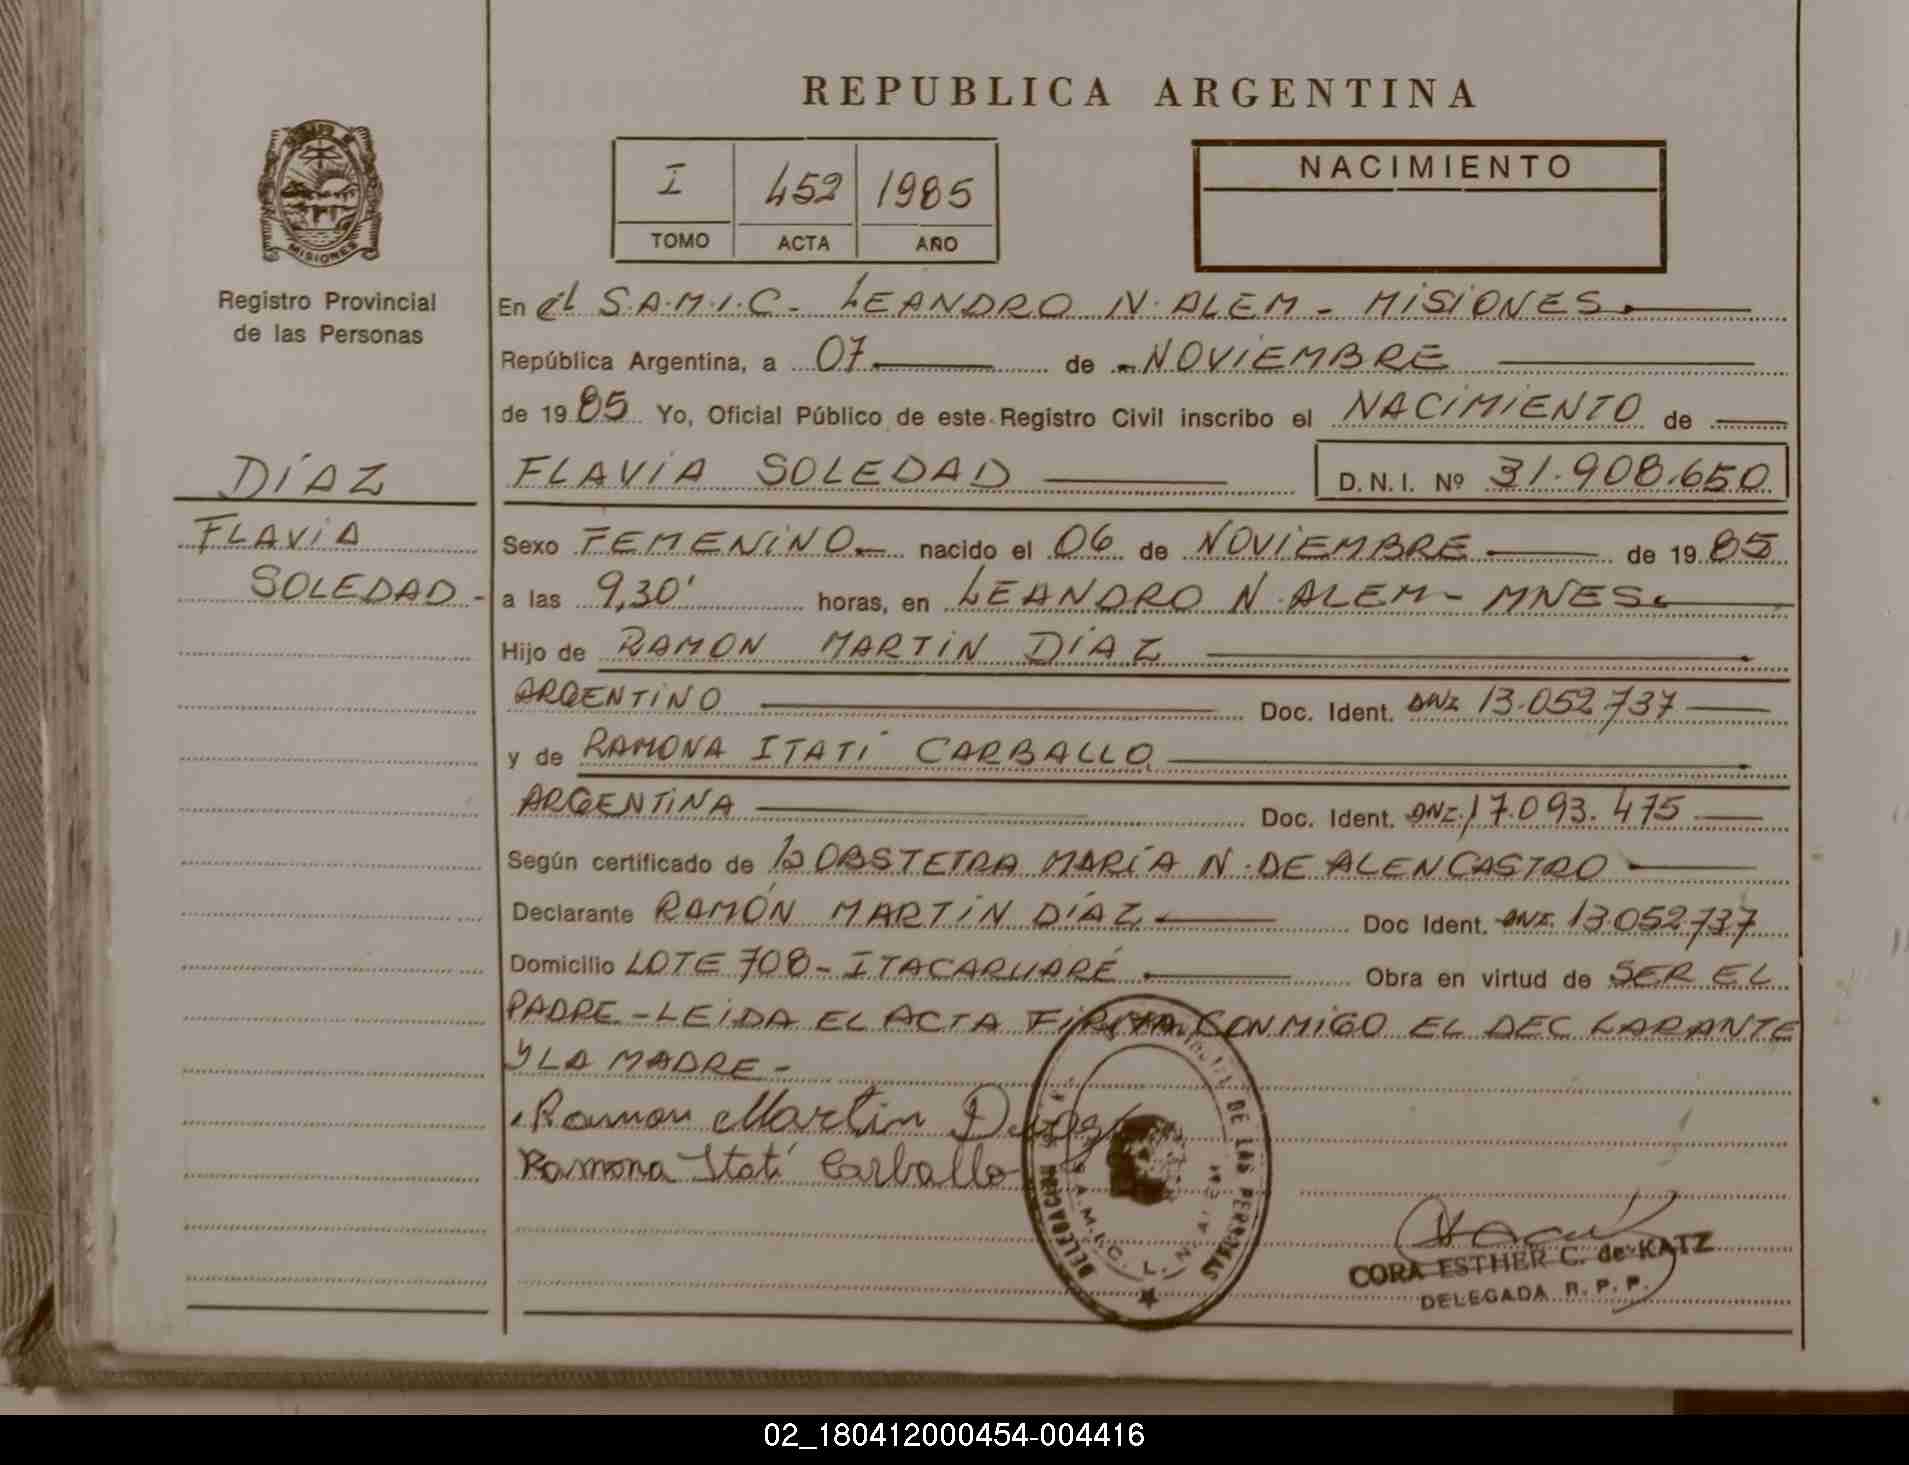 REPUBLICA ARGENTINA
I 452 1985
TOMO ACTA AÑO
NACIMIENTO
MISIONES
Registro Provincial
de las Personas
DÍAZ
FLAVIA
SOLEDAD -
En el S.A.M.I.C- LEANDRO N. ALEM - MISIONES
República Argentina, a 07 de NOVIEMBRE
de 1985 Yo, Oficial Público de este Registro Civil inscribo el NACIMIENTO de
FLAVIA SOLEDAD D.N.I. Nº 31.908.650
Sexo FEMENINO nacido el 06 de NOVIEMBRE de 1985
a las 9,30' horas, en LEANDRO N. ALEM - MNES
Hijo de RAMON MARTIN DÍAZ
ARGENTINO Doc. Ident. DNI 13.052.737
y de RAMONA ITATÍ CARBALLO
ARGENTINA Doc. Ident. DNI. 17.093.475
Según certificado de la OBSTETRA MARÍA N. DE ALENCASTRO
Declarante RAMÓN MARTIN DÍAZ Doc Ident. DNI. 13.052.737
Domicilio LOTE 708 - ITACARUARÉ Obra en virtud de SER EL
PADRE - LEIDA EL ACTA FIRMA CONMIGO EL DECLARANTE
Y LA MADRE -
Ramon Martin Diaz
Ramona Itatí Carballo
DELEGACION DE LAS PERSONAS
S.A.M.I.C. L. N.
CORA ESTHER C. de KATZ
DELEGADA R. P. P.
02_180412000454-004416